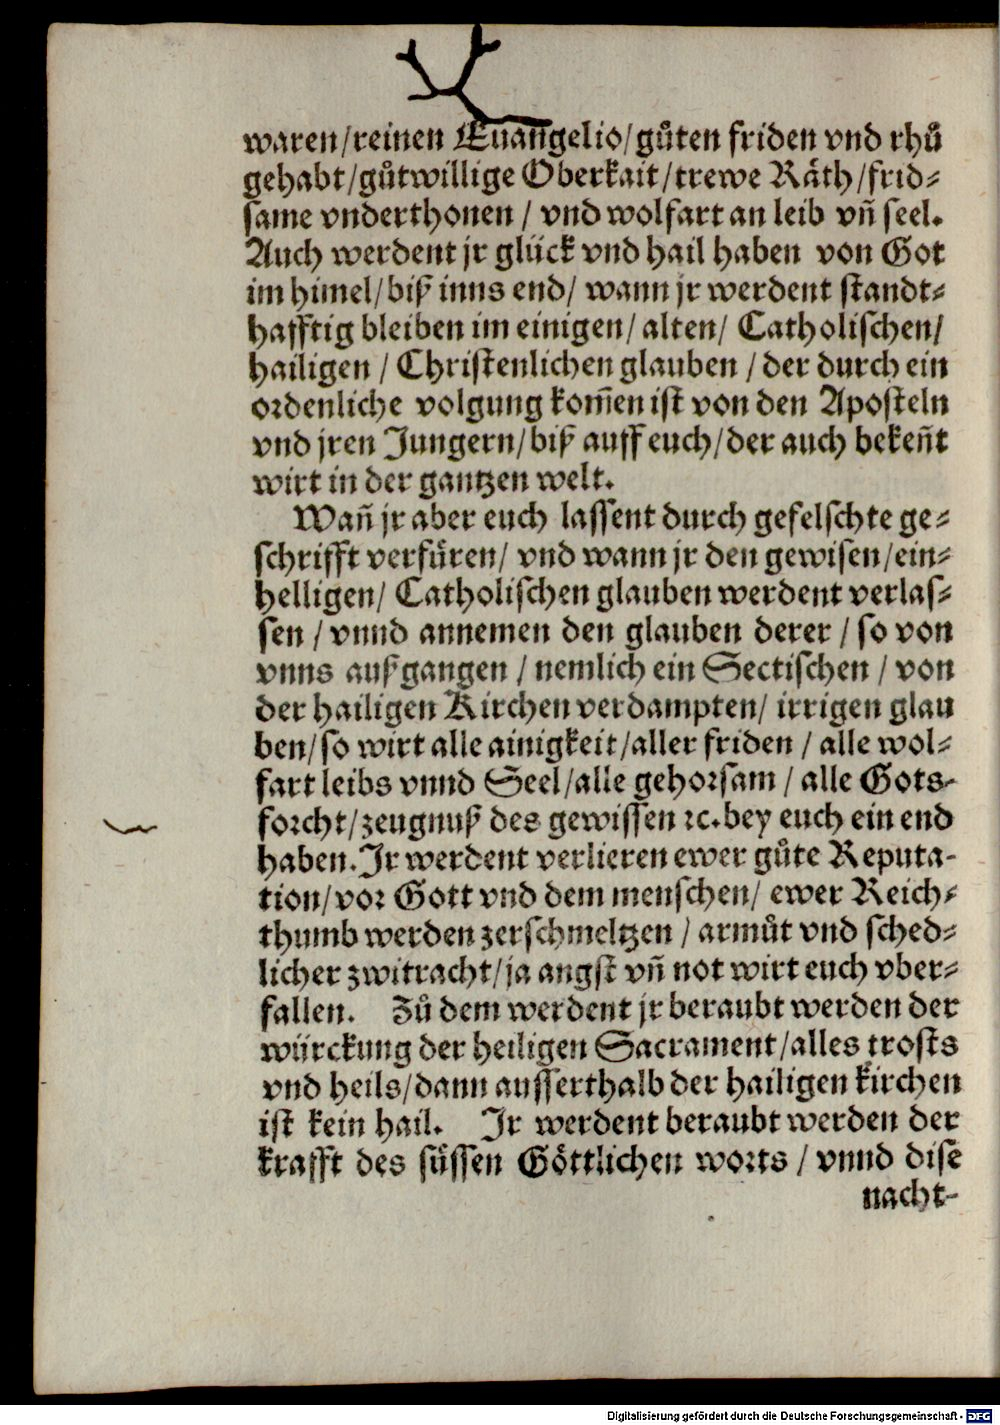 waren/reinen Euangelio/gůten friden vnd rhů
gehabt/gůtwillige Oberkait/trewe Räth/frid⸗
same vnderthonen / vnd wolfart an leib vñ seel.
Auch werdent jr glück vnd hail haben von Got
im himel/biß inns end/ wann jr werdent standt⸗
hafftig bleiben im einigen/ alten/ Catholischen/
hailigen / Christenlichen glauben / der durch ein
ordenliche volgung kom̃en ist von den Aposteln
vnd jren Jungern/biß auff euch/der auch bekeñt
wirt in der gantzen welt.
Wañ jr aber euch lassent durch gefelschte ge⸗
schrifft verfüren/ vnd wann jr den gewisen/ein⸗
helligen/ Catholischen glauben werdent verlas⸗
sen / vnnd annemen den glauben derer / so von
vnns außgangen / nemlich ein Sectischen / von
der hailigen Kirchen verdampten/ irrigen glau
ben/so wirt alle ainigkeit/aller friden / alle wol⸗
fart leibs vnnd Seel/alle gehorsam / alle Gots⸗
forcht/zeugnuß des gewissen ꝛc.bey euch ein end
haben.Jr werdent verlieren ewer gůte Reputa⸗
tion/vor Gott vnd dem menschen/ ewer Reich⸗
thumb werden zerschmeltzen / armůt vnd sched⸗
licher zwitracht/ja angst vñ not wirt euch vber⸗
fallen. Zů dem werdent jr beraubt werden der
würckung der heiligen Sacrament/alles trosts
vnd heils/dann ausserthalb der hailigen kirchen
ist kein hail. Jr werdent beraubt werden der
krafft des süssen Göttlichen worts / vnnd dise
nacht⸗
Digitalisierung gefördert durch die Deutsche Forschungsgemeinschaft - DFG